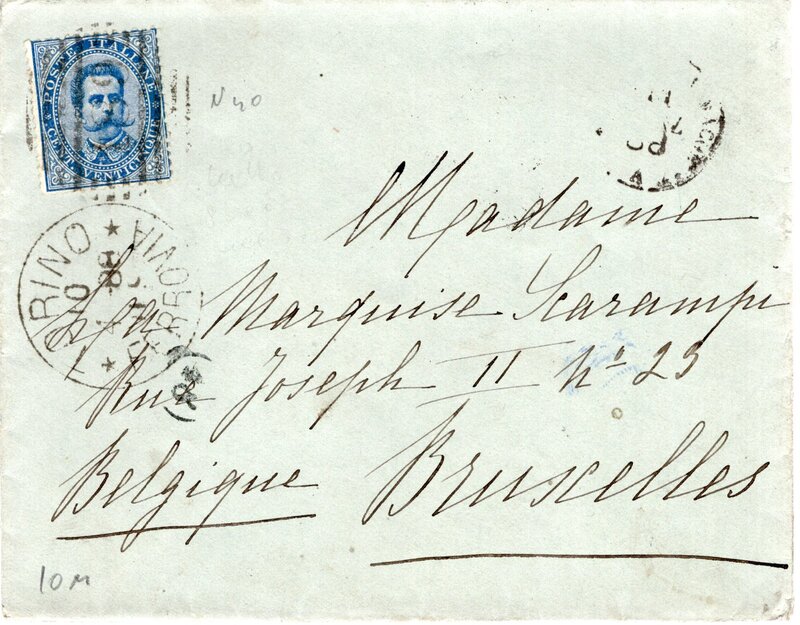 POSTE ITALIANE
CENT. VENTICINQUE
N 40
TORINO
FERROVIA
Madame
La Marquise Scarampi
Rue Joseph II No 23
Belgique Bruxelles
10 M